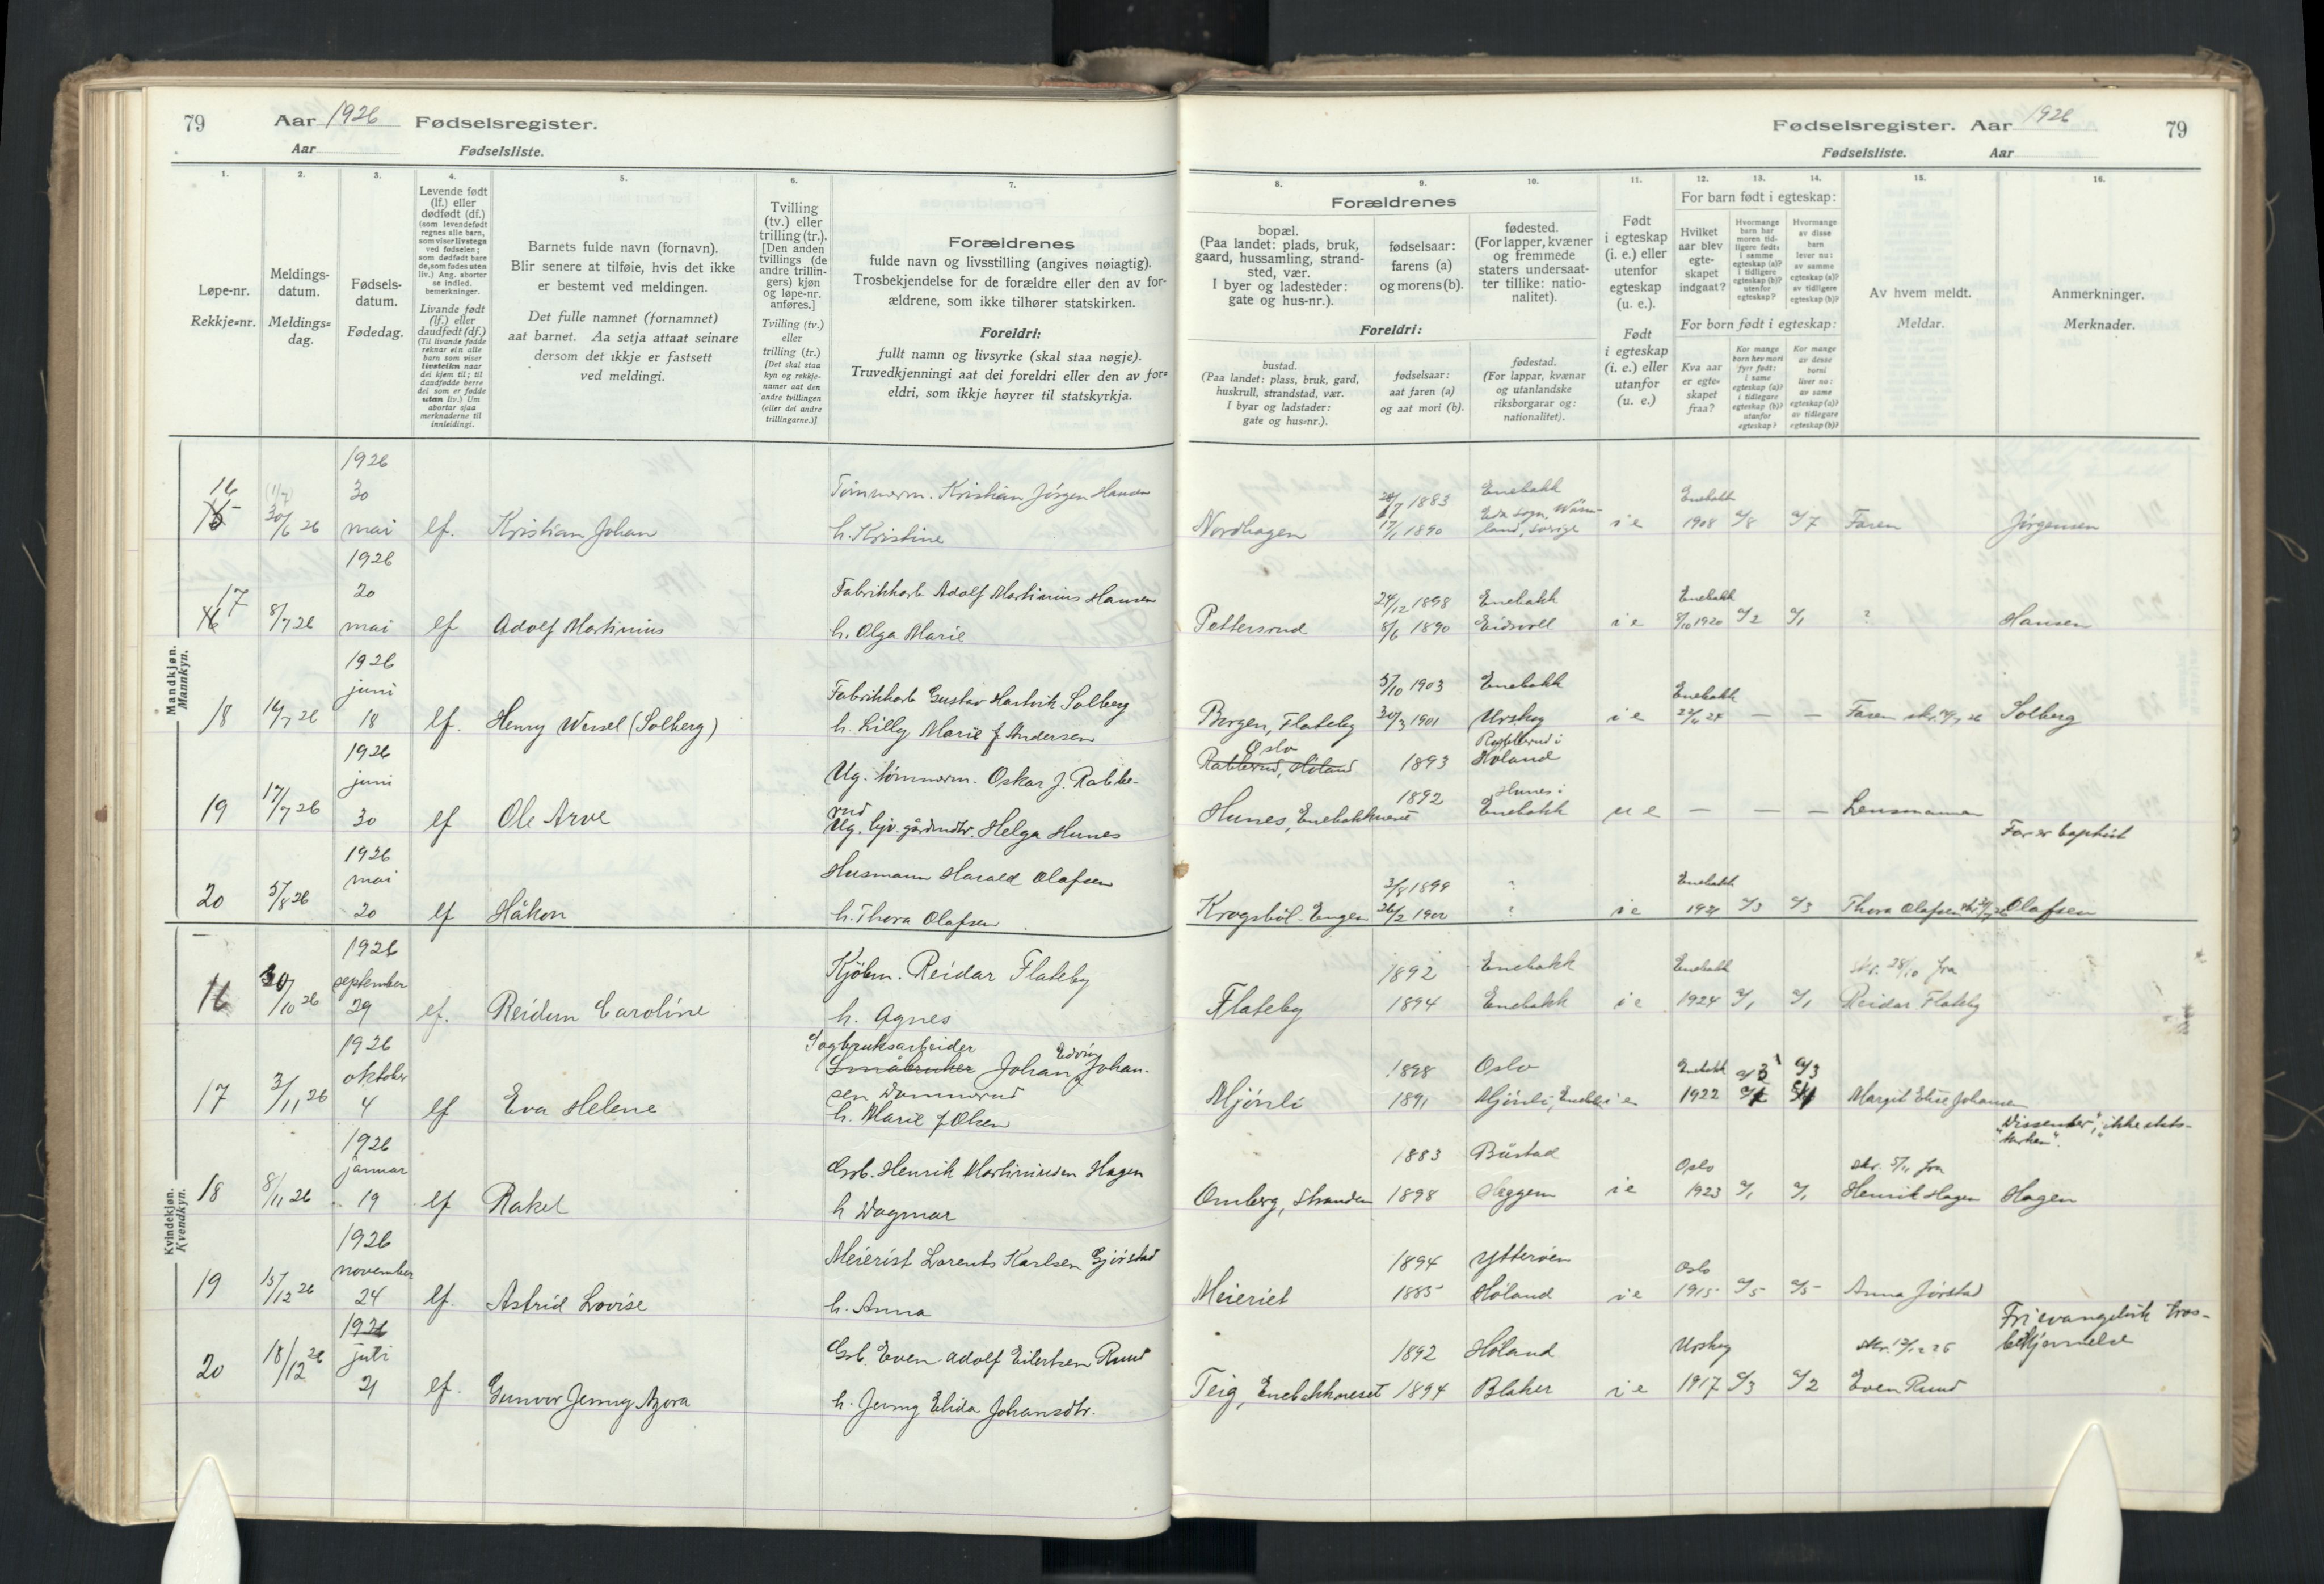 79
Aar 1926 Fødselsregister.
Aar Fødselsliste.
1.
Løpe-nr.
Rekkje-nr.
2.
Meldings-
datum.
Meldings-
dag.
3.
Fødsels-
datum.
Fødedag.
4.
Levende født
(lf.) eller
dødfødt (df.)
(som levendefødt
regnes alle barn,
som viser livstegn
ved fødselen;
som dødfødt bare
de, som fødes uten
liv.) Ang. aborter
se indled.
bemerkninger.
Livande født
(lf.) eller
daudfødt (df.)
(Til livande fødde
reknar ein alle
barn som viser
livsteikn naar
dei kjem til; til
daudfødde berre
dei som er fødde
utan liv.) Um
abortar sjaa
merknaderne til
innleidingi.
5.
Barnets fulde navn (fornavn).
Blir senere at tilføie, hvis det ikke
er bestemt ved meldingen.
Det fulle namnet (fornamnet)
aat barnet. Aa setja attaat seinare
dersom det ikkje er fastsett
ved meldingi.
6.
Tvilling
(tv.) eller
trilling (tr.).
[Den anden
tvillings (de
andre trillin-
gers) kjøn
og løpe-nr.
anføres.]
Tvilling (tv.)
eller
trilling (tr.)
[Det skal staa
kyn og rekkje-
numer aat den
andre tvillingen
(eller dei andre
trillingarne.)]
7.
Forældrenes
fulde navn og livsstilling (angives nøiagtig).
Trosbekjendelse for de forældre eller den av for-
ældrene, som ikke tilhører statskirken.
Foreldri:
fullt namn og livsyrke (skal staa nøgje).
Truvedkjenningi aat dei foreldri eller den av for-
eldri, som ikkje høyrer til statskyrkja.
Mandkjøn.
Mannkyn.
1926
16 (1/7) 30 Tømmerm. Kristian Jørgen Hansen
15 30/6 26 mai lf. Kristian Johan h. Kristine
1926
17 20 Fabrikkarb. Adolf Martinius Hansen
16 8/7 26 mai lf Adolf Martinius h. Olga Marie
1926
juni Fabrikkarb Gustav Hartvik Solberg
18 14/7 26 18 lf. Henry Wessel (Solberg) h. Lilly Marie f Andersen
1926
juni Ug. tømmerm. Oskar J. Rakke-
rud
19 17/7 26 30 lf Ole Arve Ug. hjv. gårdmdtr. Helga Hunes
1926
mai Husmann Harald Olafsen
20 5/8 26 20 lf Håkon h. Thora Olafsen
Kvindekjøn.
Kvendkyn.
1926
september Kjøbm. Reidar Flateby
16 30/10 26 29 lf. Reidun Caroline h. Agnes
1926 Sagbruksarbeider
oktober Småbruker Johan Edvin Johan-
sen Dammerud
17 3/11 26 4 lf Eva Helene h. Marie f Olsen
1926
januar Grb. Henrik Martiniusen Hagen
18 8/11 26 19 lf Rakel h Dagmar
1926
november Meierist Lorents Karlsen Gjørstad
19 15/12 26 24 lf. Astrid Lovise h. Anna
1926
juli Grb. Even Adolf Eilertsen Ruud
20 18/12 26 21 lf. Gunvor Jenny Azora h. Jenny Elida Johansdtr.
Fødselsregister. Aar 1926 79
Fødselsliste. Aar
Forældrenes
8.
bopæl.
(Paa landet: plads, bruk,
gaard, hussamling, strand-
sted, vær.
I byer og ladesteder:
gate og hus-nr.).
9.
fødselsaar:
farens (a)
og morens (b).
10.
fødested.
(For lapper, kvæner
og fremmede
staters undersaat-
ter tillike: natio-
nalitet).
Foreldri:
bustad.
(Paa landet: plass, bruk, gard,
huskrull, strandstad, vær.
I byar og ladstader:
gate og hus-nr.).
fødselsaar:
aat faren (a)
og aat mori (b).
fødestad.
(For lappar, kvænar
og utanlandske
riksborgarar og:
nationalitet).
11.
Født
i egteskap
(i. e.) eller
utenfor
egteskap
(u. e.).
Født
i egteskap
(i. e.) eller
utanfor
(u. e.)
12. 13. 14.
For barn født i egteskap:
Hvilket
aar blev
egte-
skapet
indgaat?
Hvormange
barn har
moren tid-
ligere født:
i samme
egteskap (a)?
i tidligere
egteskap (b)?
utenfor
egteskap?
Hvormange
av disse
barn
lever nu:
av samme
egteskap (a)?
av tidligere
egteskap (b)?
For born født i egteskap:
Kva aar
er egte-
skapet
fraa?
Kor mange
born hev mori
fyrr født:
i same
egteskap (a)?
i tidlegare
egteskap (b)?
utanfor
egteskap?
Kor mange
av desse
borni
liver no:
av same
egteskap (a)?
av tidlegare
egteskap (b)?
15.
Av hvem meldt.
Meldar.
16.
Anmerkninger.
Merknader.
1883 Enebakk Enebakk
Eda sogn, Wärm-
Nordhagen 17/1 1890 land, Sverige i e 1908 a/8 a/7 Faren Jørgensen
24/12 1898 Enebakk Enebakk
Pettersrud 8/6 1890 Eidsvoll i e 9/10 1920 a/2 a/1 ? Hansen
5/10 1903 Enebakk Enebakk
Borgen, Flateby 30/3 1901 Urskog i e 24 — — Faren Solberg
Oslo
Rakkerud, Høland 1893 Høland
1892 Hunes i
Hunes, Enebakkneset Enebakk u e — — — Lensmannen
Far er baptist
3/8 1899 ? Enebakk
Krogsbøl-Engen 26/2 1900 ? i e 1921 a/3 a/3 Thora Olafsen Olafsen
1892 Enebakk Enebakk skr. 28/10 fra
Flateby 1894 Enebakk i e 1924 a/1 a/1 Reidar Flateby
1898 Oslo Enebakk a/3 a/3
Mjønli 1891 Mjønli, Enebk i e 1922 Margit Elise Johansen
"Dissenter", "ikke stats-
kirken".
1883 Båstad Oslo skr. 5/11 fra
Omberg, Stranden 1898 Heggem i e 1923 a/1 a/1 Henrik Hagen Hagen
1894 Ytterøen Oslo
Meieriet 1885 Høland i e 1915 a/5 a/5 Anna Jørstad
Frievangelisk tros-
bekjennelse
1892 Høland Urskog
Teig, Enebakkneset 1894 Blaker i e 1917 a/3 a/2 Even Ruud